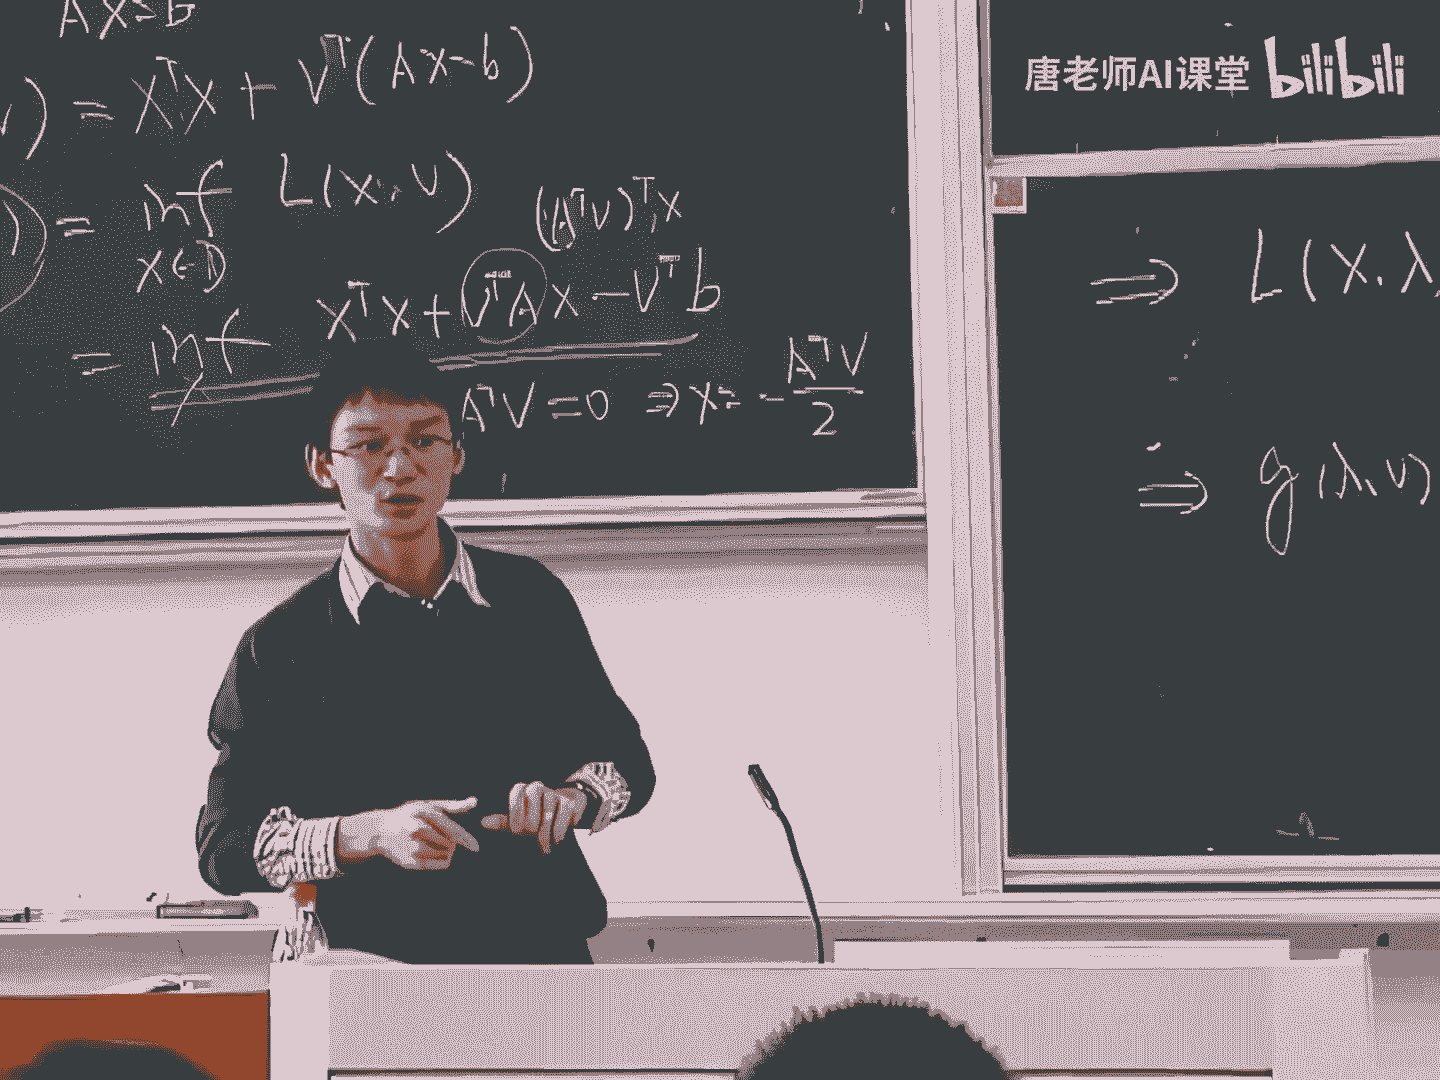 Ax=b
v) = xᵀx + vᵀ(Ax-b)
) = inf L(x, v)
x∈D
(Aᵀv)ᵀx
= inf xᵀx + vᵀAx - vᵀb
x
Aᵀv = 0 ⇒ x = - Aᵀv/2
唐老师AI课堂 bilibili
⇒ L(x, λ,
⇒ g(λ, v)